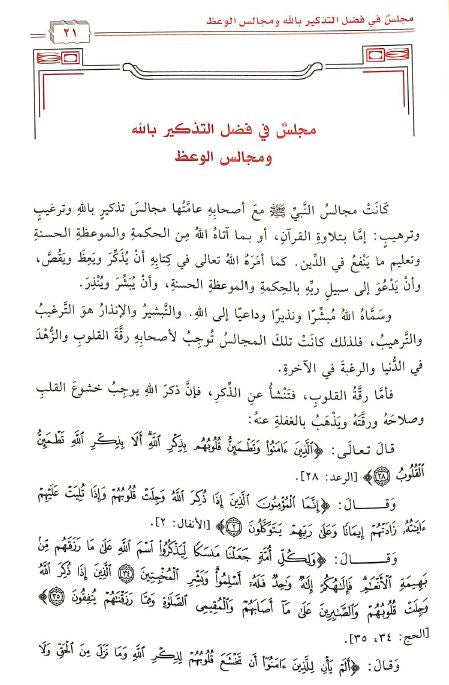 مجلسٌ في فضل التذكير بالله ومجالس الوعظ
٢١
مجلسٌ في فضل التذكير بالله
ومجالس الوعظ
كَانَتْ مجالسُ النبيِّ ﷺ معَ أصحابِهِ عامَّتُها مجالسَ تذكيرٍ باللهِ وترغيبٍ
وترهيبٍ: إمَّا بتلاوةِ القرآنِ، أو بما آتاهُ اللهُ مِن الحكمةِ والموعظةِ الحسنةِ
وتعليمِ ما يَنْفَعُ في الدِّينِ. كما أمَرَهُ اللهُ تعالى في كتابِهِ أنْ يُذَكِّرَ ويَعِظَ ويَقُصَّ،
وأنْ يَدْعُوَ إلى سبيلِ ربِّهِ بالحِكمةِ والموعظةِ الحسنةِ، وأنْ يُبَشِّرَ ويُنْذِرَ.
وسَمَّاهُ اللهُ مُبشِّرًا ونذيرًا وداعيًا إلى اللهِ. والتَّبشيرُ والإنذارُ هوَ التَّرغيبُ
والتَّرهيبُ، فلذلك كانَتْ تلكَ المجالسُ تُوجِبُ لأصحابِهِ رقَّةَ القلوبِ والزُّهْدَ
في الدُّنيا والرغبةَ في الآخرةِ.
فأمَّا رقَّةُ القلوبِ، فتَنْشأُ عنِ الذِّكرِ، فإنَّ ذكرَ اللهِ يوجِبُ خشوعَ القلبِ
وصلاحَهُ ورقَّتَهُ ويَذْهَبُ بالغفلةِ عنهُ:
قالَ تعالى: ﴿الَّذِينَ ءَامَنُوا وَتَطْمَئِنُّ قُلُوبُهُم بِذِكْرِ اللَّهِ أَلَا بِذِكْرِ اللَّهِ تَطْمَئِنُّ
الْقُلُوبُ ﴿٢٨﴾﴾ [الرعد: ٢٨].
وَقالَ: ﴿إِنَّمَا الْمُؤْمِنُونَ الَّذِينَ إِذَا ذُكِرَ اللَّهُ وَجِلَتْ قُلُوبُهُمْ وَإِذَا تُلِيَتْ عَلَيْهِمْ
ءَايَـٰتُهُ زَادَتْهُمْ إِيمَانًا وَعَلَىٰ رَبِّهِمْ يَتَوَكَّلُونَ ﴿٢﴾﴾ [الأنفال: ٢].
وَقالَ: ﴿وَلِكُلِّ أُمَّةٍ جَعَلْنَا مَنسَكًا لِّيَذْكُرُوا اسْمَ اللَّهِ عَلَىٰ مَا رَزَقَهُم مِّنۢ
بَهِيمَةِ الْأَنْعَـٰمِ فَإِلَـٰهُكُمْ إِلَـٰهٌ وَٰحِدٌ فَلَهُۥ أَسْلِمُوا وَبَشِّرِ الْمُخْبِتِينَ ﴿٣٤﴾ الَّذِينَ إِذَا ذُكِرَ اللَّهُ
وَجِلَتْ قُلُوبُهُمْ وَالصَّـٰبِرِينَ عَلَىٰ مَا أَصَابَهُمْ وَالْمُقِيمِي الصَّلَوٰةِ وَمِمَّا رَزَقْنَـٰهُمْ يُنفِقُونَ ﴿٣٥﴾﴾
[الحج: ٣٤، ٣٥].
وَقالَ: ﴿أَلَمْ يَأْنِ لِلَّذِينَ ءَامَنُوا أَن تَخْشَعَ قُلُوبُهُمْ لِذِكْرِ اللَّهِ وَمَا نَزَلَ مِنَ الْحَقِّ وَلَا